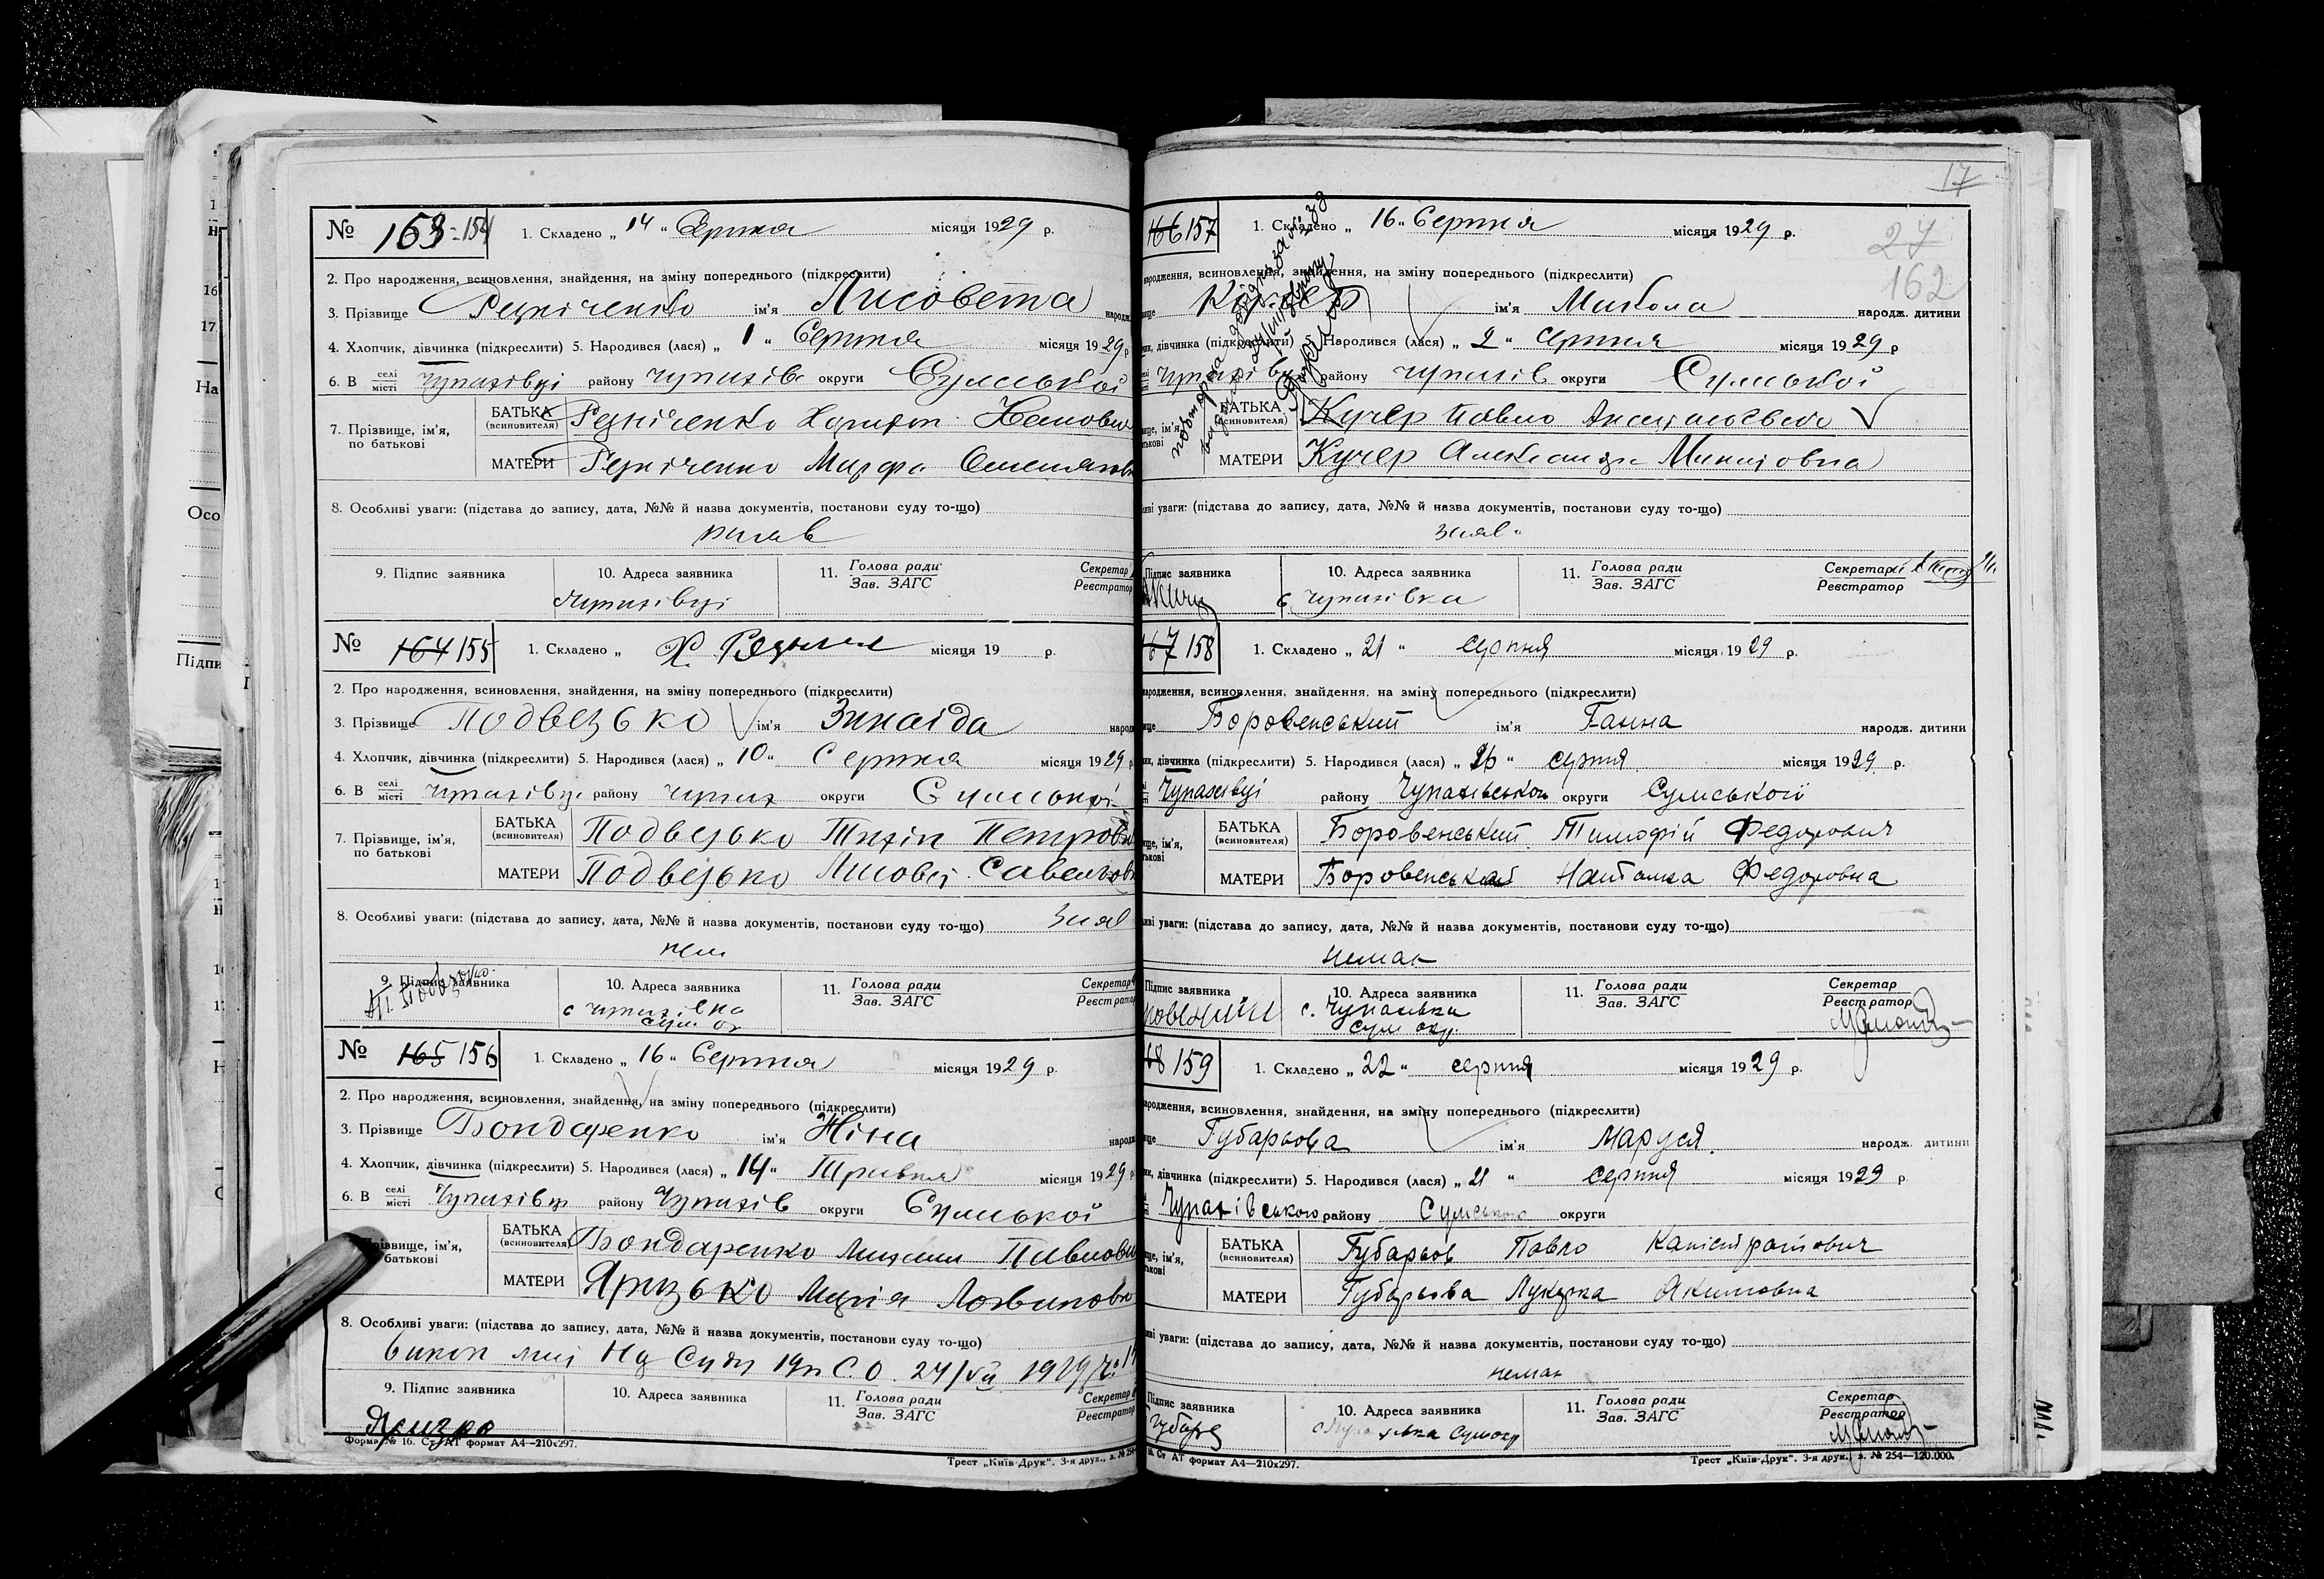 № 163-154
1. Складено „ 14 “ Серпня місяця 1929 р.
2. Про народження, всиновлення, знайдення, на зміну попереднього (підкреслити)
3. Прізвище Резніченко ім'я Лисовета народж.
4. Хлопчик, дівчинка (підкреслити) 5. Народився (лася) „ 1 “ Серпня місяця 1929 р
6. В селі місті Чупахівці району Чупахів округи Сумської
7. Прізвище, ім'я, по батькові
БАТЬКА (всиновителя) Резніченко Харитон
МАТЕРИ Резніченко Марфа
8. Особливі уваги: (підстава до запису, дата, №№ й назва документів, постанови суду то-що)
9. Підпис заявника 10. Адреса заявника 11. Голова ради Зав. ЗАГС Секретар Реєстратор
Чупахівці
№ 164 155
1. Складено „ місяця 19 р.
2. Про народження, всиновлення, знайдення, на зміну попереднього (підкреслити)
3. Прізвище Подвезько ім'я Зинаїда народ
4. Хлопчик, дівчинка (підкреслити) 5. Народився (лася) „ 10 “ Серпня місяця 1929 р
6. В селі місті Чупахівці району Чупах округи Сумської
7. Прізвище, ім'я, по батькові
БАТЬКА (всиновителя) Подвезько Тихін Петров
МАТЕРИ Подвезько Лисовет Савельєв
8. Особливі уваги: (підстава до запису, дата, №№ й назва документів, постанови суду то-що)
9. Підпис заявника 10. Адреса заявника 11. Голова ради Зав. ЗАГС Секретар Реєстратор
с Чупахівка
Сум ок
№ 165 156
1. Складено „ 16 “ Серпня місяця 1929 р.
2. Про народження, всиновлення, знайдення, на зміну попереднього (підкреслити)
3. Прізвище Бондаренко ім'я Ніна народж
4. Хлопчик, дівчинка (підкреслити) 5. Народився (лася) „ 14 “ Травня місяця 1929 р
6. В селі місті Чупахівці району Чупахів округи Сумської
Прізвище, ім'я, батькові
БАТЬКА (всиновителя) Бондаренко Михаил Павлови
МАТЕРИ Яризько Марія Логвинов
8. Особливі уваги: (підстава до запису, дата, №№ й назва документів, постанови суду то-що)
Нар Суду С.О. 24/VII 1929
9. Підпис заявника 10. Адреса заявника 11. Голова ради Зав. ЗАГС Секретар Реєстратор
Форма № 16. Ст. АТ формат А4—210x297.
Трест „Київ-Друк“. 3-я друк., з. № 254
17
27
162
166 157
1. Складено „ 16 “ Серпня місяця 1929 р.
народження, всиновлення, знайдення, на зміну попереднього (підкреслити)
Кучер ім'я Микола народж. дитини
дівчинка (підкреслити) 5. Народився (лася) „ 2 “ Серпня місяця 1929 р
Чупахівці району Чупахів округи Сумської
БАТЬКА (всиновителя) Кучер Павло
МАТЕРИ Кучер Александра
уваги: (підстава до запису, дата, №№ й назва документів, постанови суду то-що)
Підпис заявника 10. Адреса заявника 11. Голова ради Зав. ЗАГС Секретар Реєстратор
с Чупахівка
167 158
1. Складено „ 21 “ серпня місяця 1929 р.
народження, всиновлення, знайдення, на зміну попереднього (підкреслити)
Боровенський ім'я Ганна народж. дитини
дівчинка (підкреслити) 5. Народився (лася) „ “ серпня місяця 1929 р.
Чупахівці району Чупахівського округи Сумської
БАТЬКА (всиновителя) Боровенський Тимофій Федорович
МАТЕРИ Боровенська Наталка Федоровна
уваги: (підстава до запису, дата, №№ й назва документів, постанови суду то-що)
немає
Підпис заявника 10. Адреса заявника 11. Голова ради Зав. ЗАГС Секретар Реєстратор
с. Чупахівка
Сум окр.
168 159
1. Складено „ 22 “ серпня місяця 1929 р.
народження, всиновлення, знайдення, на зміну попереднього (підкреслити)
Губарьова ім'я Маруся народж. дитини
дівчинка (підкреслити) 5. Народився (лася) „ 21 “ серпня місяця 1929 р
Чупахівського району Сумської округи
БАТЬКА (всиновителя) Губарьов Павло Капістратович
МАТЕРИ Губарьова Лукерка Якимовна
уваги: (підстава до запису, дата, №№ й назва документів, постанови суду то-що)
немає
Підпис заявника 10. Адреса заявника 11. Голова ради Зав. ЗАГС Секретар Реєстратор
Ст АТ формат А4—210x297.
Трест „Київ-Друк“. 3-я друк., з. № 254—120.000.